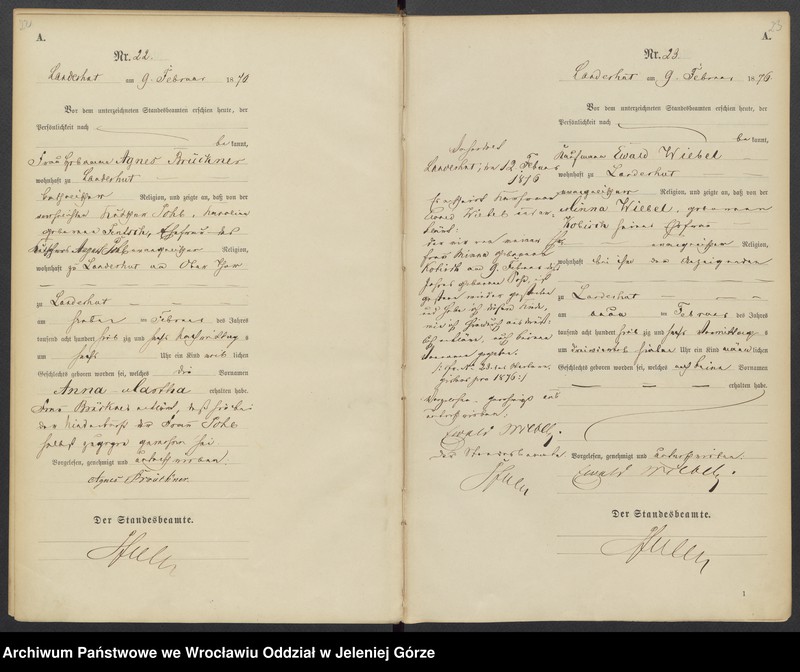 A.
Nr. 22.
Landeshut am 9. Februar 1876
Vor dem unterzeichneten Standesbeamten erschien heute, der
Persönlichkeit nach
bekannt,
Frau Hebamme Agnes Brückner
wohnhaft zu Landeshut
katholischer Religion, und zeigte an, daß von der
verehelichten Pohl, Karoline
geborenen Ehefrau des
Pohl evangelischer Religion,
wohnhaft zu Landeshut am Ober Thor
zu Landeshut
am sieben ten Februar des Jahres
tausend acht hundert sieb zig und sechs Nachmittag s
um sechs Uhr ein Kind weib lichen
Geschlechts geboren worden sei, welches die Vornamen
Anna Martha erhalten habe.
Frau Brückner erklärt, daß sie bei
der Niederkunft der Frau Pohl
selbst zugegen gewesen sei.
Vorgelesen, genehmigt und unterschrieben.
Agnes Brückner.
Der Standesbeamte.
23
A.
Nr. 23.
Landeshut am 9. Februar 1876.
Vor dem unterzeichneten Standesbeamten erschien heute, der
Persönlichkeit nach
bekannt,
Kaufmann Ewald Wiebel
wohnhaft zu Landeshut
evangelischer Religion, und zeigte an, daß von der
Minna Wiebel, geborenen
seiner Ehefrau
evangelischer Religion,
wohnhaft bei ihm dem Anzeigenden
zu Landeshut
am ten Februar des Jahres
tausend acht hundert sieb zig und sechs Vormittag s
um sieben Uhr ein Kind männ lichen
Geschlechts geboren worden sei, welches noch keine Vornamen
erhalten habe.
Vorgelesen, genehmigt und unterschrieben.
Ewald Wiebel.
Der Standesbeamte.
1
Landeshut, den 12. Februar
1876
Es erscheint Kaufmann
Ewald Wiebel und er-
klärt:
Der mir von meiner Ehe-
frau Minna geborenen
am 9. Februar des
Jahres geborene Sohn, ist
gestern wieder gestorben
und habe ich diesem Kinde,
wie ich hiermit ausdrück-
lich erkläre, noch keinen
Vornamen gegeben.
pro 1876.
Vorgelesen, genehmigt und
unterschrieben.
Ewald Wiebel.
Der Standesbeamte
Archiwum Państwowe we Wrocławiu Oddział w Jeleniej Górze